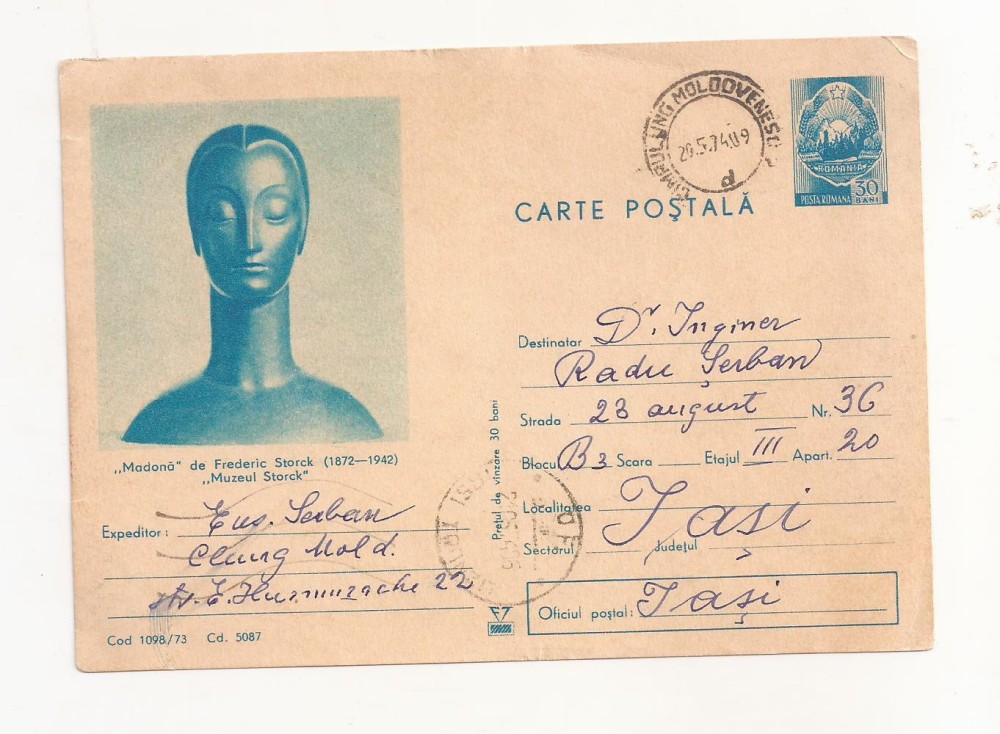 CÎMPULUNG MOLDOVENESC
20.5.74.09
d
ROMANIA
POSTA ROMANA 30 BANI
CARTE POȘTALĂ
„Madonă" de Frederic Storck (1872—1942)
„Muzeul Storck"
Expeditor: Eug. Serban
Clung Mold.
str. E. Hurmuzache 22
Cod 1098/73 Cd. 5087
Prețul de vînzare 30 bani
Destinatar Dr. Inginer
Radu Șerban
Strada 23 august Nr. 36
Blocul B3 Scara Etajul III Apart. 20
Localitatea Iași
Sectorul Județul
Oficiul poștal: Iași